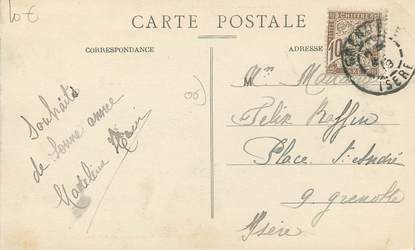 10€
CARTE POSTALE
CORRESPONDANCE
ADRESSE
CHIFFRE
10
ISÈRE
Souhaits
de bonne année
Madeleine
90
Mr
Felix Raffin
Place St André
grenoble
Isère